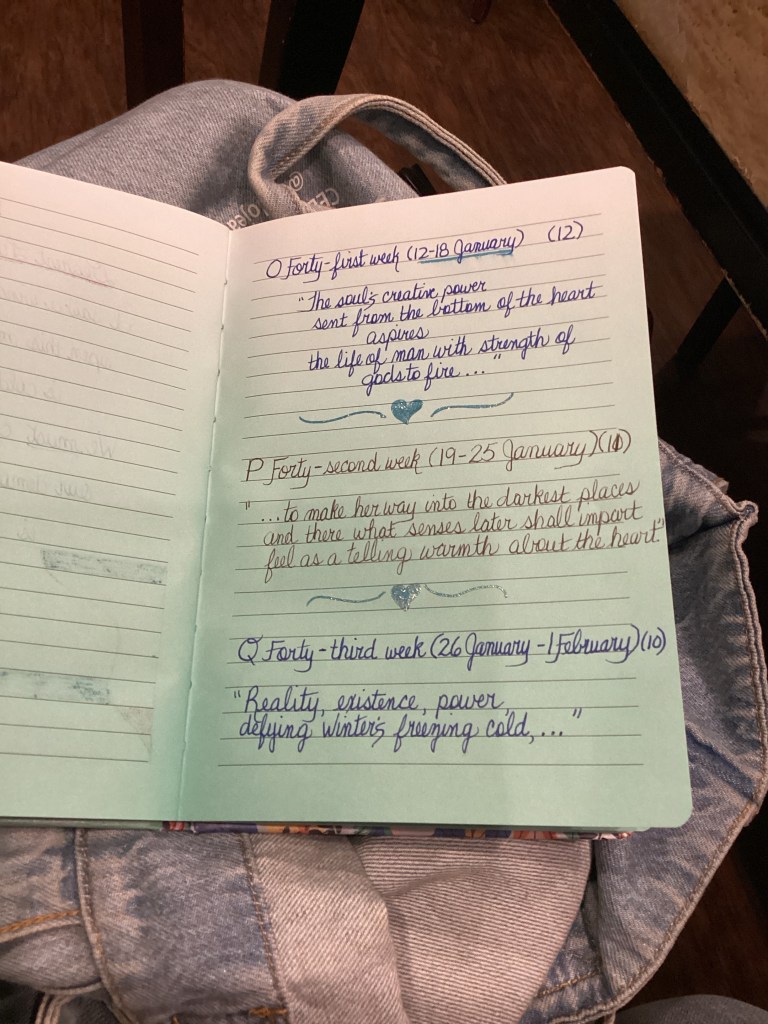 O Forty-first week (12-18 January) (12)
"The soul's creative power
sent from the bottom of the heart
aspires
the life of man with strength of
gods to fire ..."
P Forty-second week (19-25 January) (11)
"...to make her way into the darkest places
and there what senses later shall impart
feel as a telling warmth about the heart."
Q Forty-third week (26 January - 1 February) (10)
"Reality, existence, power,
defying winter's freezing cold, ..."